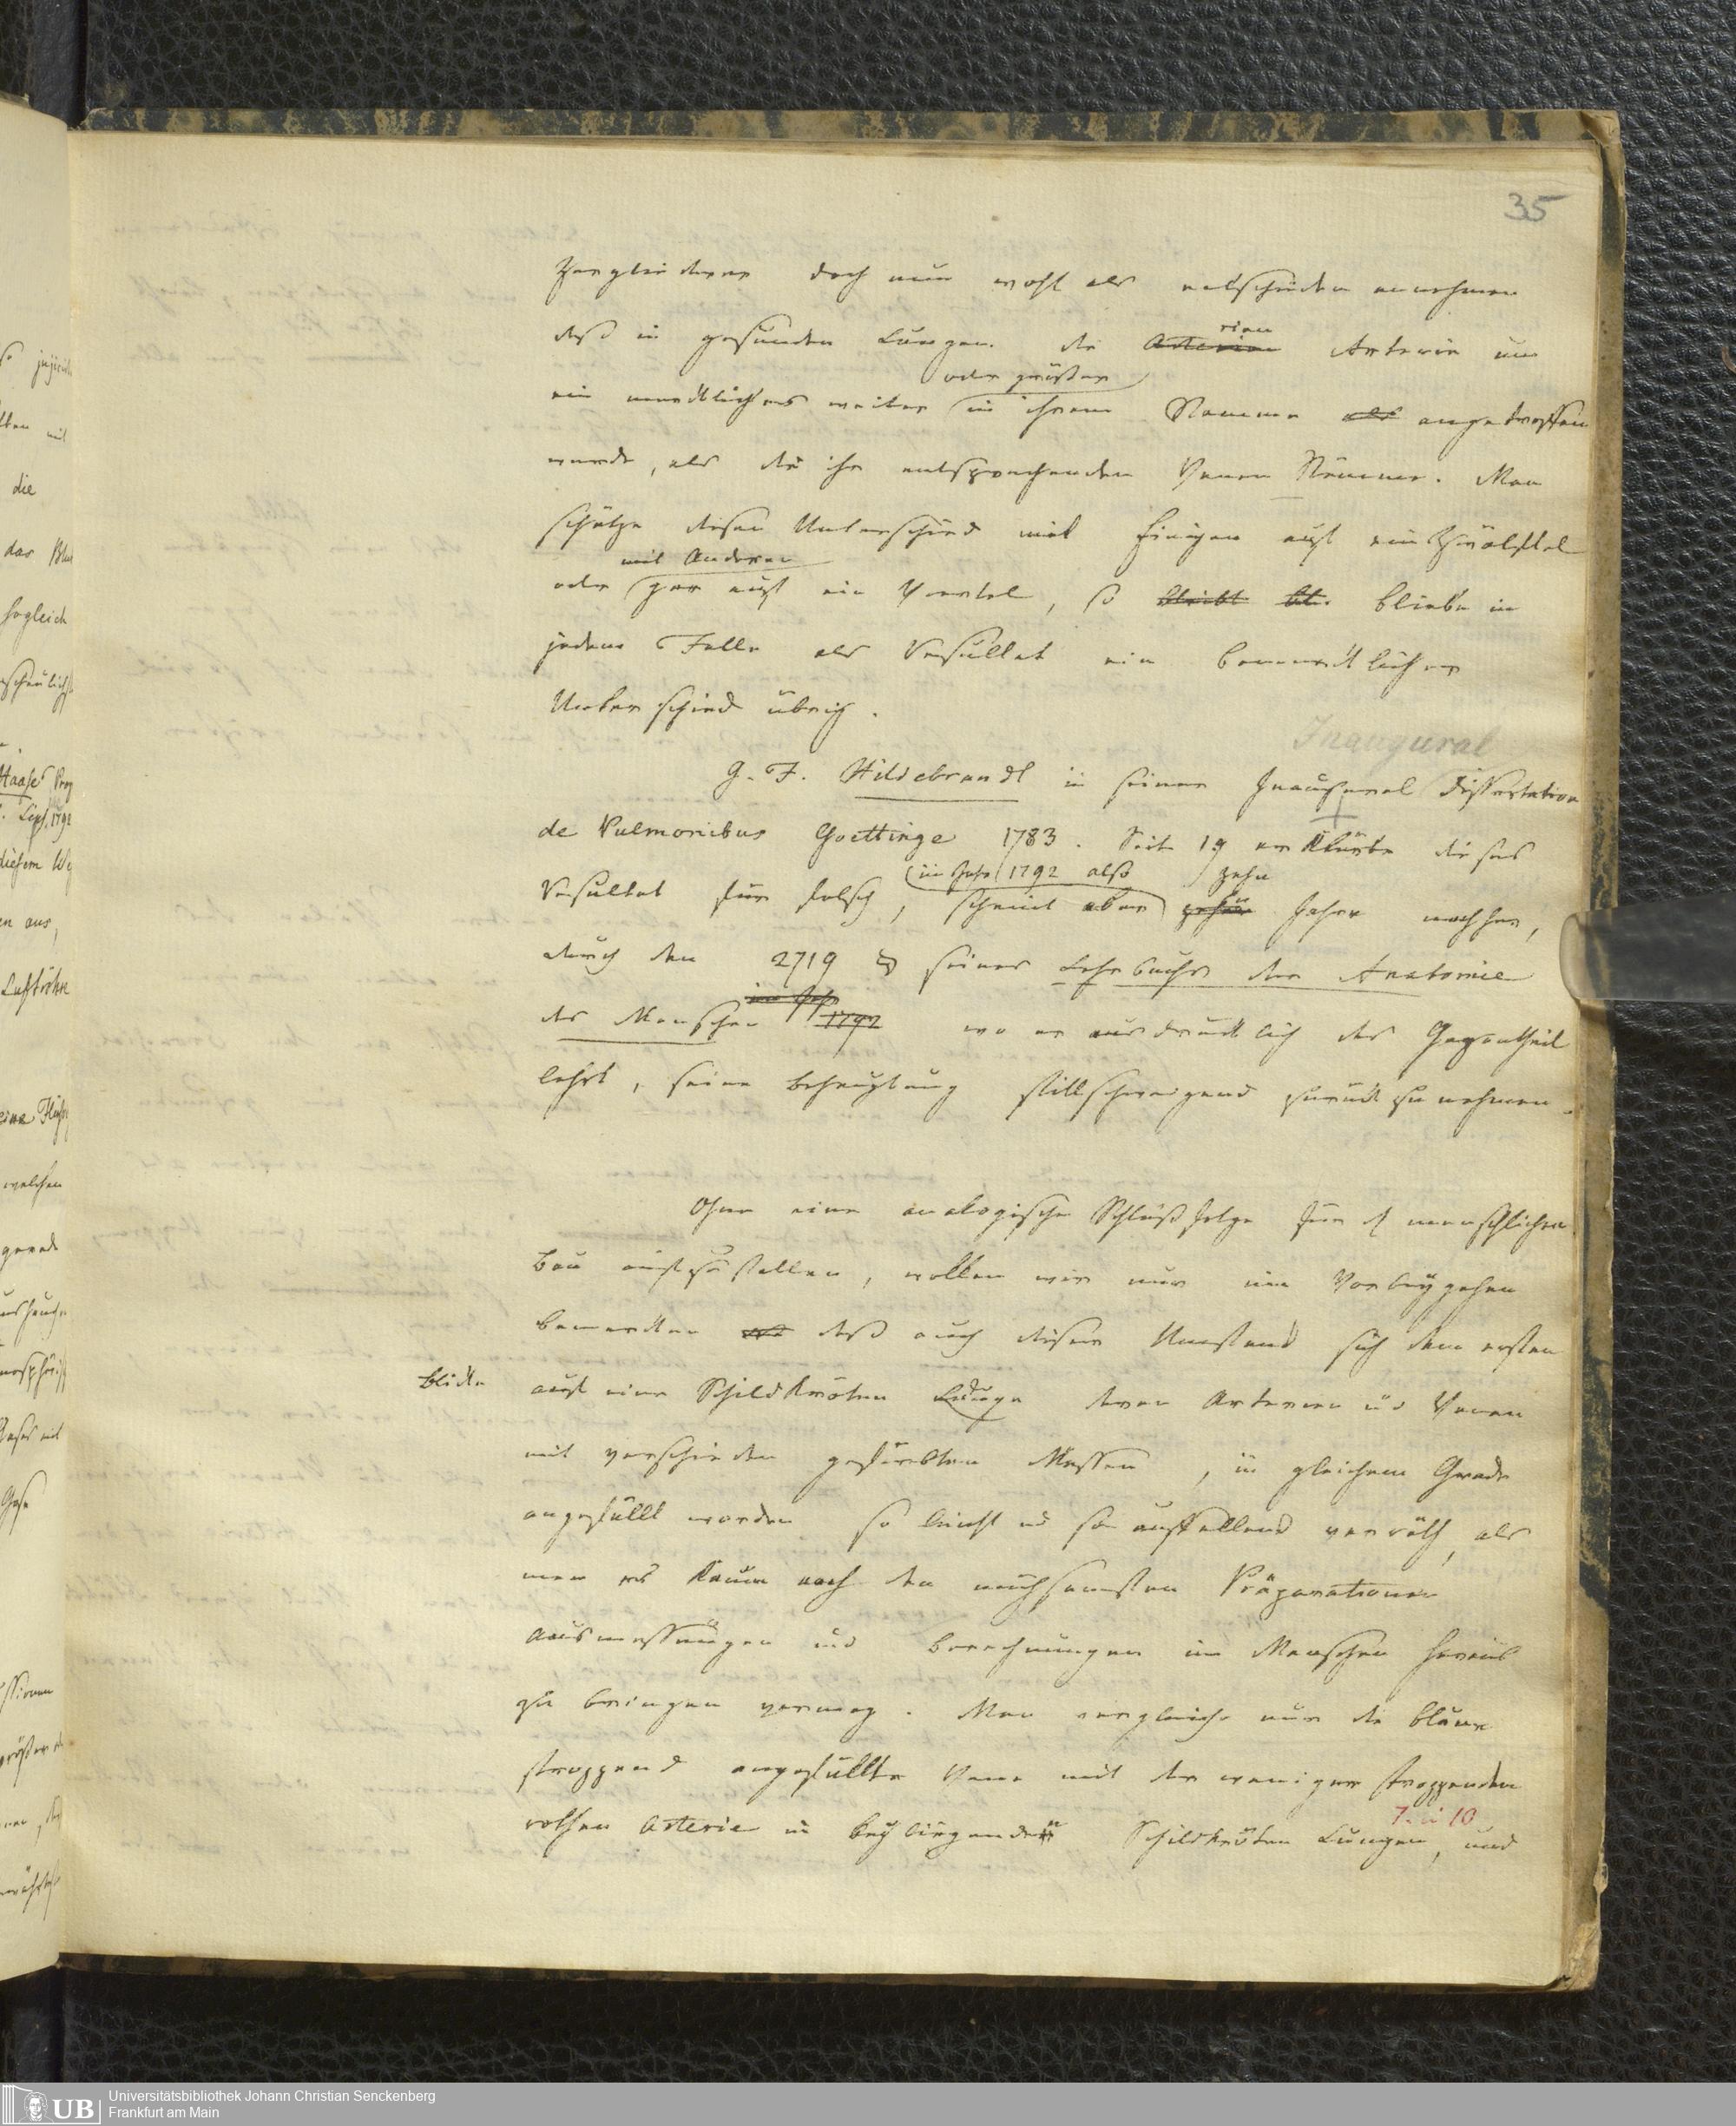 35
Zergliederer doch nun wohl als entschieden annehmen
daß in gesunden Lungen die Arterien Arterie um
rien
ein merkliches weiter in ihrem Stamme als angetroffen
oder größer
werde, als die ihr entsprechenden Venen Stämme. Man
schätze diesen Unterschied mit Einigen auf ein Zwölftel
mit Anderen
oder gar auf ein Viertel, so bleibt bl. bliebe in
jedem Falle als Resultat ein bemerklicher
Unterschied übrig.
Inaugural
G. F. Hildebrandt in seiner Inaugural Dissertation
de Pulmonibus Goettinge 1783. Seit. 19 erklärte dieses
im Jahr 1792 also zehn
Resultat für falsch, scheint aber zehen Jahre nachher,
durch den 2719 § seines Lehrbuchs der Anatomie
im Jahr 1792
des Menschen wo er ausdrücklich das Gegentheil
lehrt, seine Behauptung stillschweigend zurück zu nehmen.
Ohne eine analogische Schlußfolge für d menschlichen
Bau aufzustellen, wollen wir nur im Vorbeygehen
bemerken daß auch dieser Umstand sich dem ersten
Blicke auf eine Schildkröten Lunge deren Arterien und Venen
mit verschieden gefärbten Massen, in gleichem Grade
angefüllt worden so leicht und so auffallend verräth, als
man es kaum nach den mühsamsten Präparationen
Ausmessungen und Berechnungen im Menschen heraus
zu bringen vermag. Man vergleiche nur die blaue
strozzend angefüllte Vene mit der weniger strozzenden
7. u 10
rothen Arterie in beyliegenden Schildkröten Lungen, und
die
das
sogleich
Haase
Lips. 1792
diesem
en aus,
Luftröhre
eine
welchen
gerade
Gase
UB
Universitätsbibliothek Johann Christian Senckenberg
Frankfurt am Main